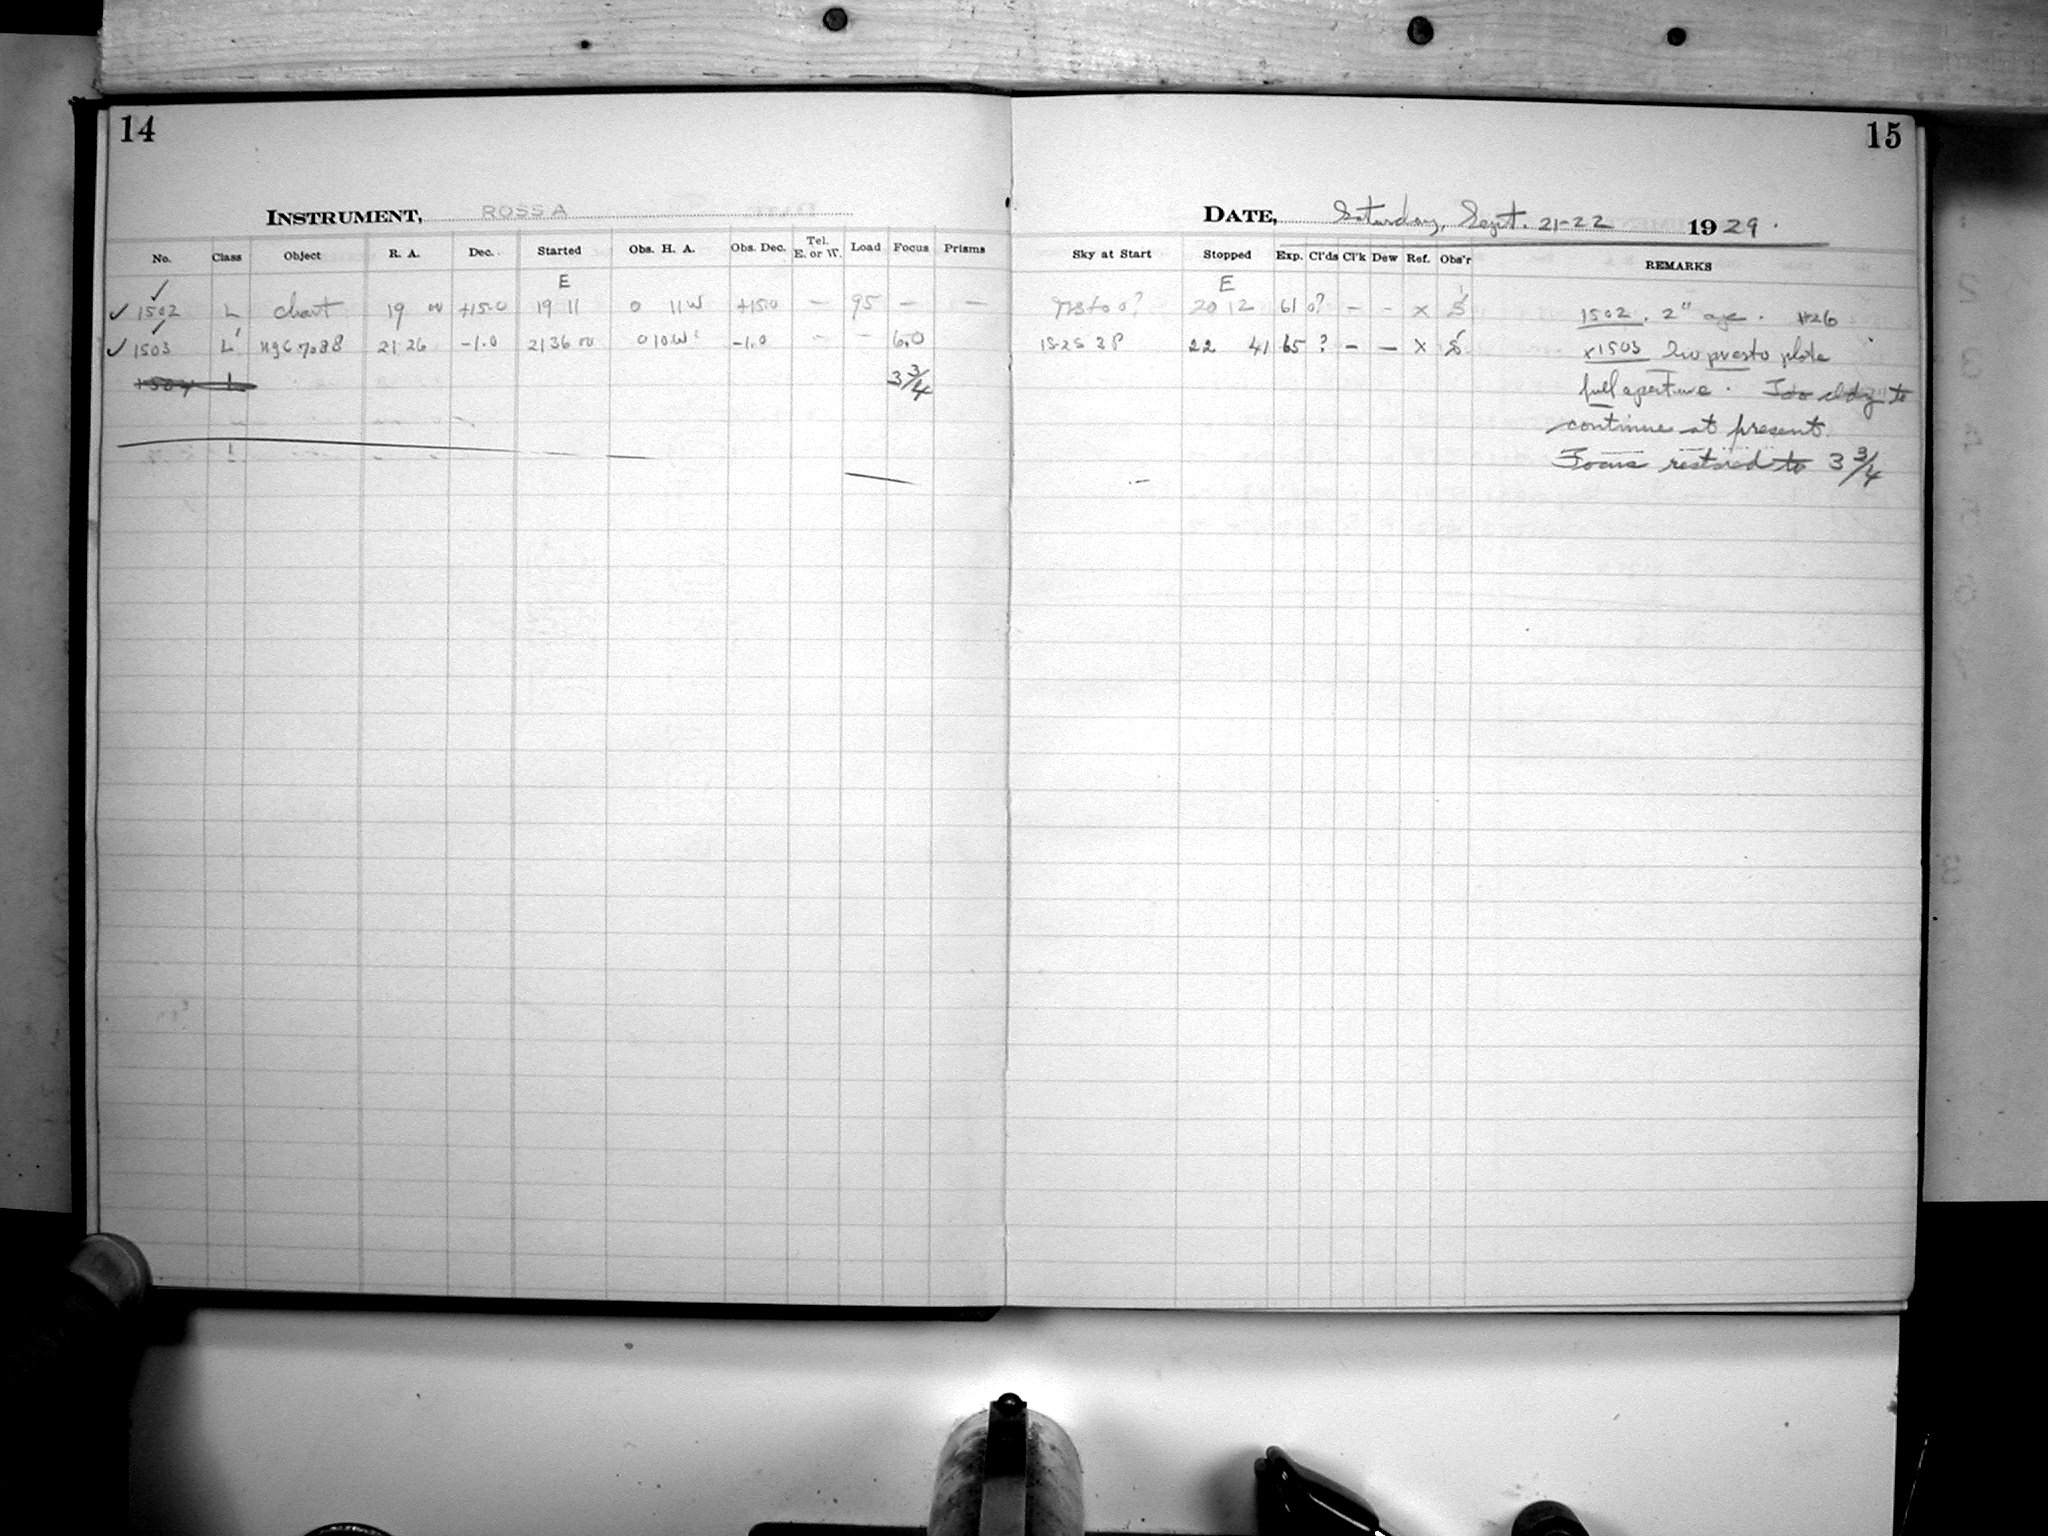 14
15
INSTRUMENT, ROSS A
DATE, Saturday, Sept. 21-22 1929.
No. Class Object R. A. Dec. Started Obs. H. A. Obs. Dec. Tel. E. or W. Load Focus Prisms Sky at Start Stopped Exp. Cl'ds Cl'k Dew Ref. Obs'r REMARKS
E E
✓ 1502 L chart 19 00 +15.0 19 11 0 11 W +15.0 — 95 — — 20 12 61 0? — - X S 1502. 2" #26
✓ 1503 L' 21 26 -1.0 21 36 00 0 10 W -1.0 - - 6.0 22 41 65 ? — — X S x1503 presto plate
3 3/4 full aperture. Too cldy to
continue at present.
Focus restored to 3 3/4